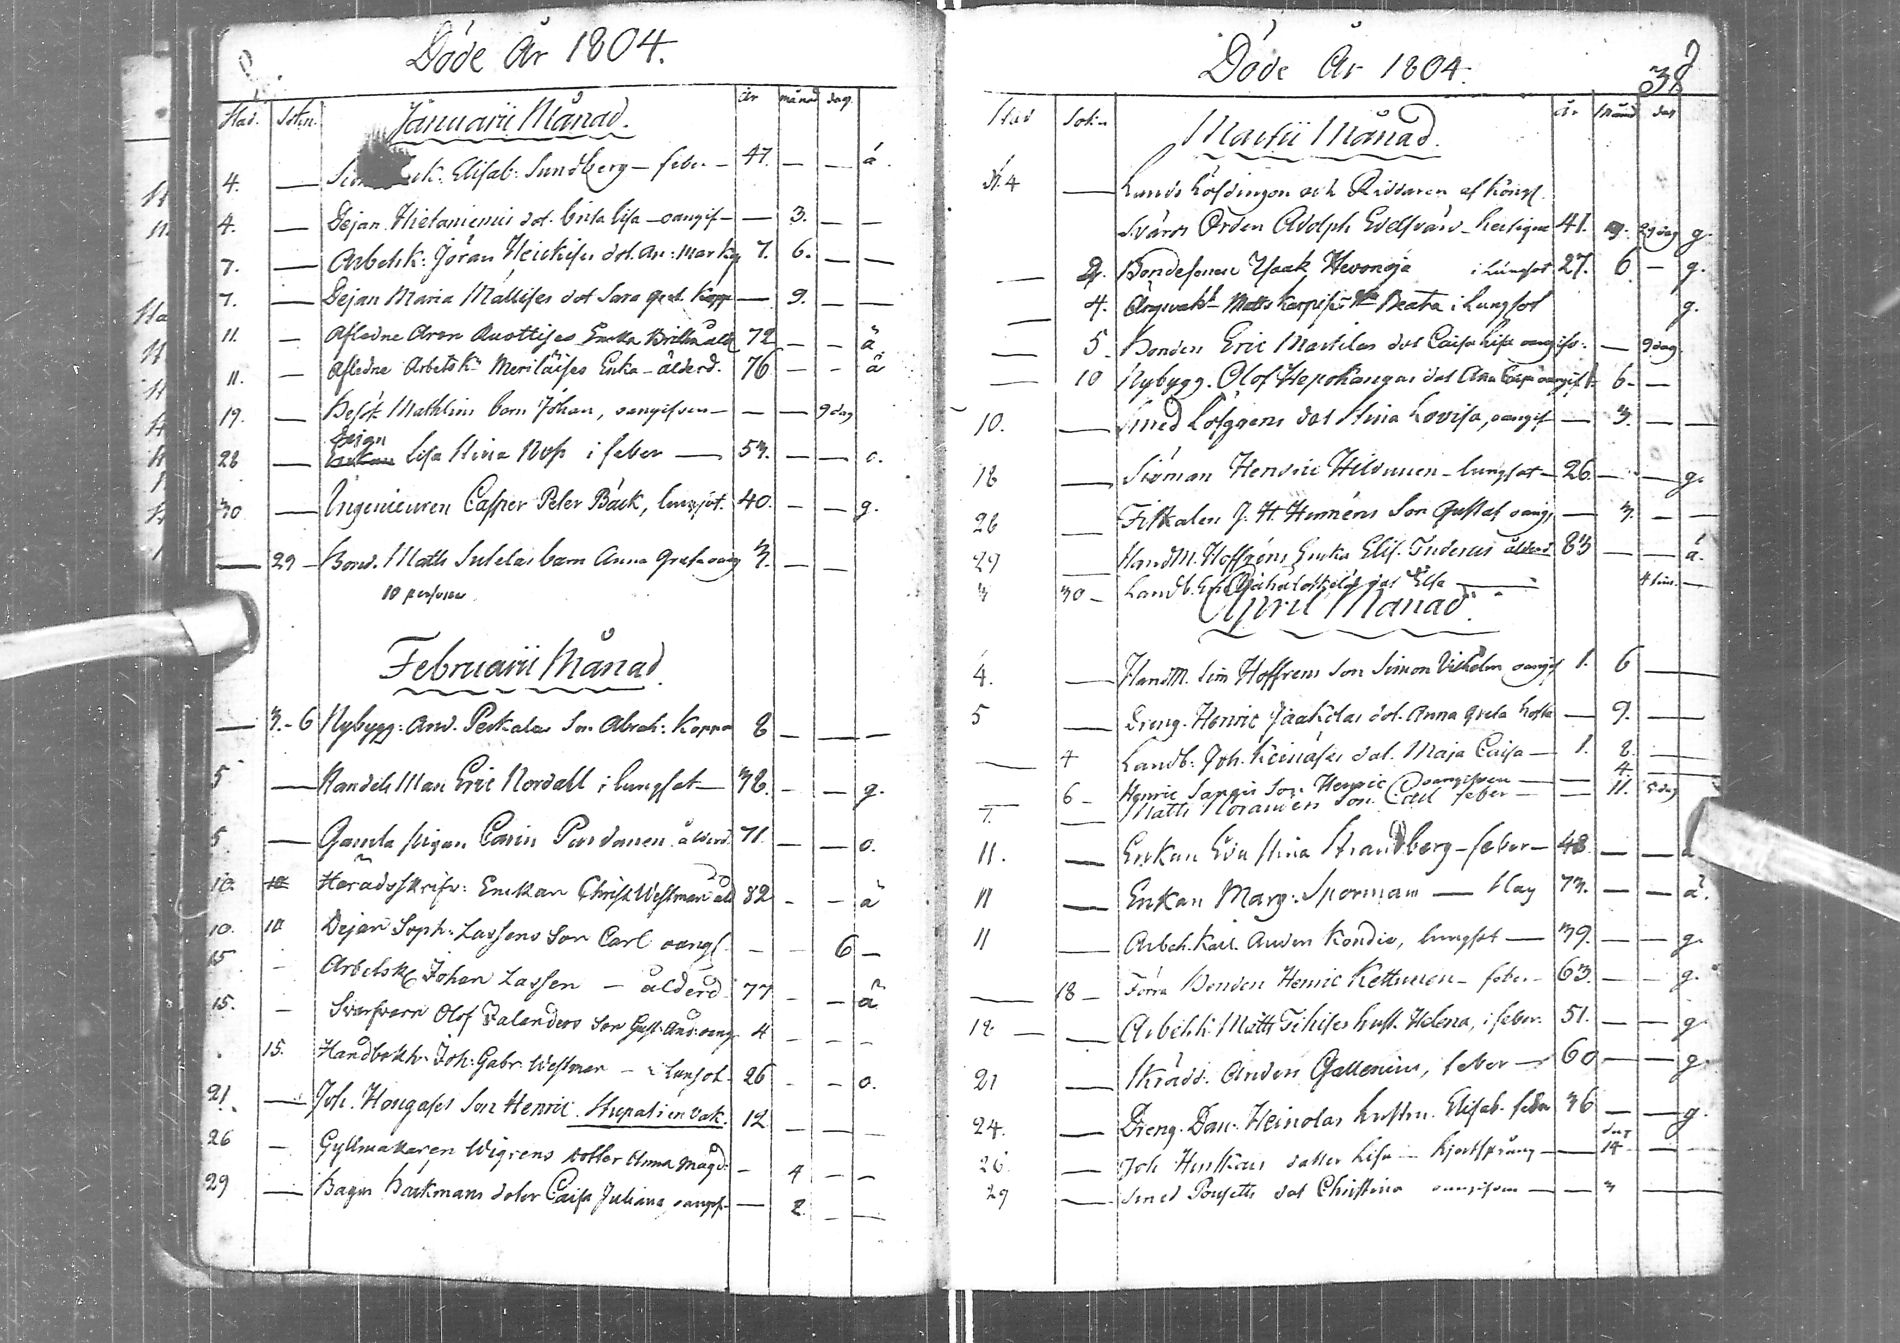 Döde År 1804.
Stad. Sokn. Januarii Månad. År månad dag.
4. — Elisab: Sundberg — feber — 47. — — å
4. — Pejan Hietaniemis dot. Brita Lisa — oangif — — 3. — —
7. — Arbetsk: Jöran Heickises dot. An: Marg 7. 6. — —
7. — Pejan Maria Mallises dot Sara Gret. Kopp — 9. — —
11. — Afledne Aron Enka Britta åld 72 — — ä
11. — Afledne Arbetsk: Meriläises Enka — ålderd. 76 — — ä
19. — Besök: Mathlins barn Johan, oangifven — — — 9 dag
Peign
28 — Enkan Lisa Stina Ross i feber — 53. — — o.
30 — Ingenieuren Casper Peter Bäck, lungsot. 40. — — g.
— 29 — Bond. Matts Sutelas barn Anna Greta oang 3. — —
10 personer
Februarii Månad.
— 3. — 6 Nybygg: And. Peckalas Son Abrah: Koppor 8 — — —
5 — Handels Man Eric Nordall i lungsot — 38. — — g.
5. — Gamla pigan Carin Purdanen ålderd. 71. — — o.
10. 10 Häradsskrifv: Enckan Christ. Westman åld 82 — — ä
10. 10 Pejan Soph: Lassens Son Carl oangf. — — 6 —
15 — Arbetsk Johan Lassen — ålderd 77 — — ä
15. — Svarfvarn Olof Zalanders Son Gust: And: oang. 4 — — —
15. Handbokh: Joh: Gabr: Westman — i lunsot. 26 — — o.
21. — Joh. Hougases Son Henric Stupat i en vak. 12 — — —
26 — Gyllmakaren Wigrens dotter Anna Magd: — 4 — —
29 — Bagar Bäckmans doter Caisa Juliana, oangif — 2 — —
Döde År 1804.
38
Stad Sokn Martii Månad. År Månad dag
4 — Lands Höfdingen och Riddaren af Kongl.
Svärds Orden Adolph Edelsvärd — hectique 41. 29 dag g.
— 2. Bondesonen Isaak Hevonoja i Lungsot 27. 6 — g.
— 4. Matts Beata i Lungsot g.
— 5 — Bonden Eric Martilas dot Caisa Lisa oangifv: — 9 dag.
— 10 Nybygg. Olof Hepokangas dot Anna Caisa oangif 6 — —
10. — Smed Löfgrens dot Stina Lovisa, oangif — 3. — —
18 — Siöman Henric Hildunen — lungsot — 26. — — g.
26 — Fiskalen J. H. Hornéns Son Gustaf oang, — 3. — —
29 — HandM. Hoffréns Encka Elis. Tuderus ålderd 83 — — å.
30 — Landb. dot Elsa — 4 tim. —
April Månad.
4. — HandM. Sim Hoffrens Son Simon Vilhelm oangif 1. 6 —
5 — Dreng. Henric Jaakolas dot. Anna Greta hosta — 9. —
— 4 Landb: Joh. Keinäses dot. Maja Caisa — 1. 8. —
— 6 — Henric Son Henric oangifven — — 4. —
7. — Matts Moranders Son Carl feber — — 11. 5 dag
11. — Enkan Eva Stina Strandberg — feber — 48. — —
11 — Enkan Marg: Sporman — Slag 73. — — å.
11 — Arbetskarl. Anders Kondie, lungsot — 39. — — g.
— 18 — Förra Bonden Henric Kettunen — feber — 63. — — g.
18 — Arbetsk: Matts hust. Helena, i feber. 51. — — g.
21 — Skrädd. Anders Gallenius, feber — 60 — — g.
24. — Dreng. Dan. Heinolas hustru Elisab. feber 36 — — g.
26 — Joh dotter Lisa — hjertsprång — dag 14 — —
29 — Smed dot Christina oangifven — — 3 —